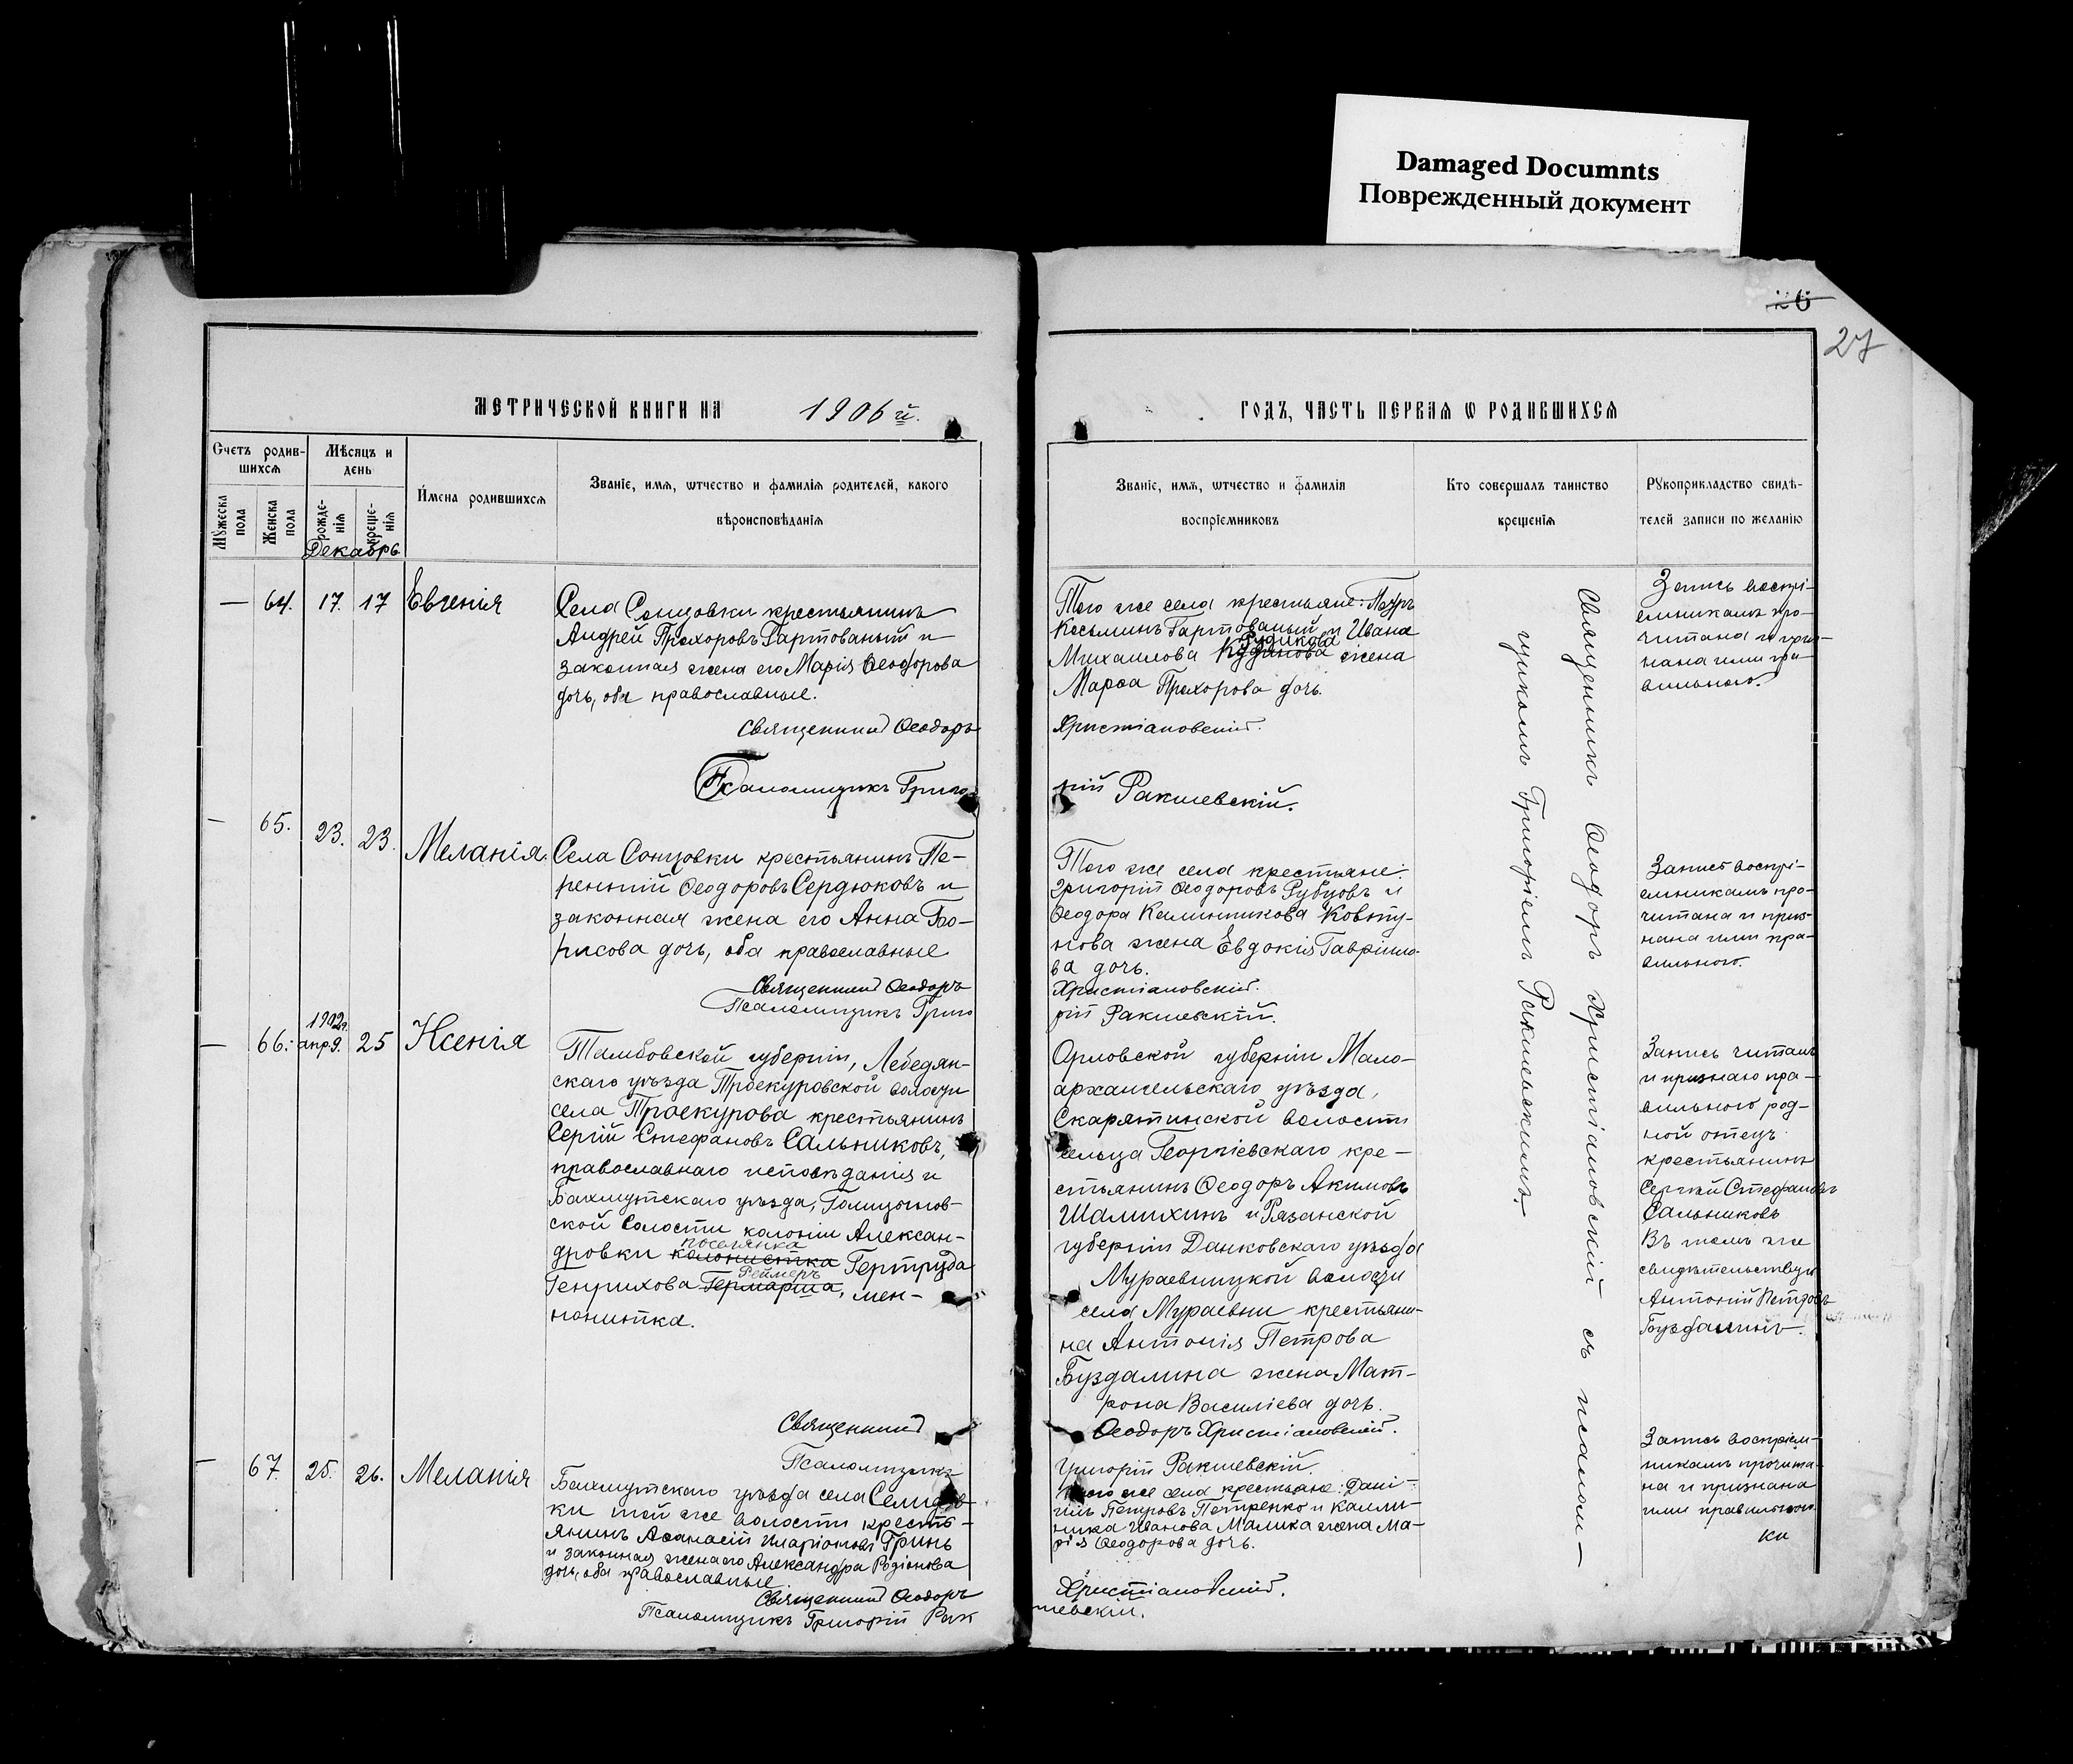 Damaged Documnts
Поврежденный документ
26
27
МЕТРИЧЕСКОЙ КНИГИ НА 1906 й.
ГОДЪ, ЧАСТЬ ПЕРВАЯ Ѡ РОДИВШИХСЯ
Счетъ родив-
шихся
Мѣсяцъ и
день
Мꙋжеска
пола
Женска
пола
рожде-
нія
креще-
нія
Декабрь
Имена родившихся
Званіе, имя, ѡтчество и фамилія родителей, какого
вѣроисповѣданія
Званіе, имя, ѡтчество и фамилія
воспріемниковъ
Кто совершалъ таинство
крещенія
Рꙋкоприкладство свидѣ-
телей записи по желанію
— 64. 17. 17 Евгенія
Села Сонцовки крестьянинъ
Андрей Прохоровъ Гартованый и
законная жена его Марія Ѳеодорова
дочь, оба православные.
Священникъ Ѳеодоръ
Псаломщикъ Григо-
Того же села крестьяне: Петръ
Косьминъ Гартованый и Ивана
Рудикова
Михаилова жена
Марѳа Прохорова дочь.
Христіановскій.
рій Ракшевскій.
Запись воспрі-
емникамъ про-
читана и приз-
нана ими пра-
вильною.
— 65. 23. 23. Меланія.
Села Сонцовки крестьянинъ Те-
рентій Ѳеодоровъ Сердюковъ и
законная жена его Анна Бо-
рисова дочь, оба православные
Священникъ Ѳеодоръ
Псаломщикъ Григо
Того же села крестьяне:
Григорій Ѳеодоровъ Рубцовъ и
Ѳеодора Калинникова Ковту-
нова жена Евдокія Гавріило-
ва дочь.
Христіановскій.
рій Ракшевскій.
Запись воспрі-
емникамъ про-
читана и приз-
нана ими пра-
вильною.
— 66. 1902г. апр. 9. 25 Ксенія
Тамбовской губерніи, Лебедян-
скаго уѣзда Троекуровской волости
села Троекурова крестьянинъ
Сергій Стефановъ Сальниковъ,
православнаго исповѣданія и
Бахмутскаго уѣзда, Голицынов-
ской волости колоніи Алексан-
поселянка
дровки колонистка Гертруда
Реймеръ
Генрихова Гермарша, мен-
нонитка.
Священникъ
Псаломщикъ
Орловской губерніи Мало-
архангельскаго уѣзда,
Скарятинской волости
сельца Георгіевскаго кре-
стьянинъ Ѳеодоръ Акимовъ
Шалихинъ и Рязанской
губерніи Данковскаго уѣзда
Мураевницкой волости
села Мураевни крестьяни-
на Антонія Петрова
Буздалина жена Мат-
рона Василіева дочь.
Ѳеодоръ Христіановскій.
Григорій Ракшевскій.
Запись читалъ
и признаю пра-
вильного род-
ной отецъ
крестьянинъ
Сергѣй Стефановъ
Сальниковъ
Въ томъ же
свидѣтельствую
Антоній Петровъ
Буздалинъ.
— 67. 25. 26. Меланія
Бахмутскаго уѣзда села Селидов-
ки той же волости кресть-
янинъ Аѳанасій Иларіоновъ Гринь
и законная жена его Александра Родіонова
дочь, оба православные
Священникъ Ѳеодоръ
Псаломщикъ Григорій Рак
Того же села крестьяне: Дані-
илъ Петровъ Петренко и Калли-
ника Иванова Малика жена Ма-
рія Ѳеодорова дочь.
Христіановскій.
шевскій.
Запись воспріем-
никамъ прочита-
на и признана
ими правильною
ки
Священникъ Ѳеодоръ Христіановскій съ псалом-
щикомъ Григоріемъ Ракшевскимъ.